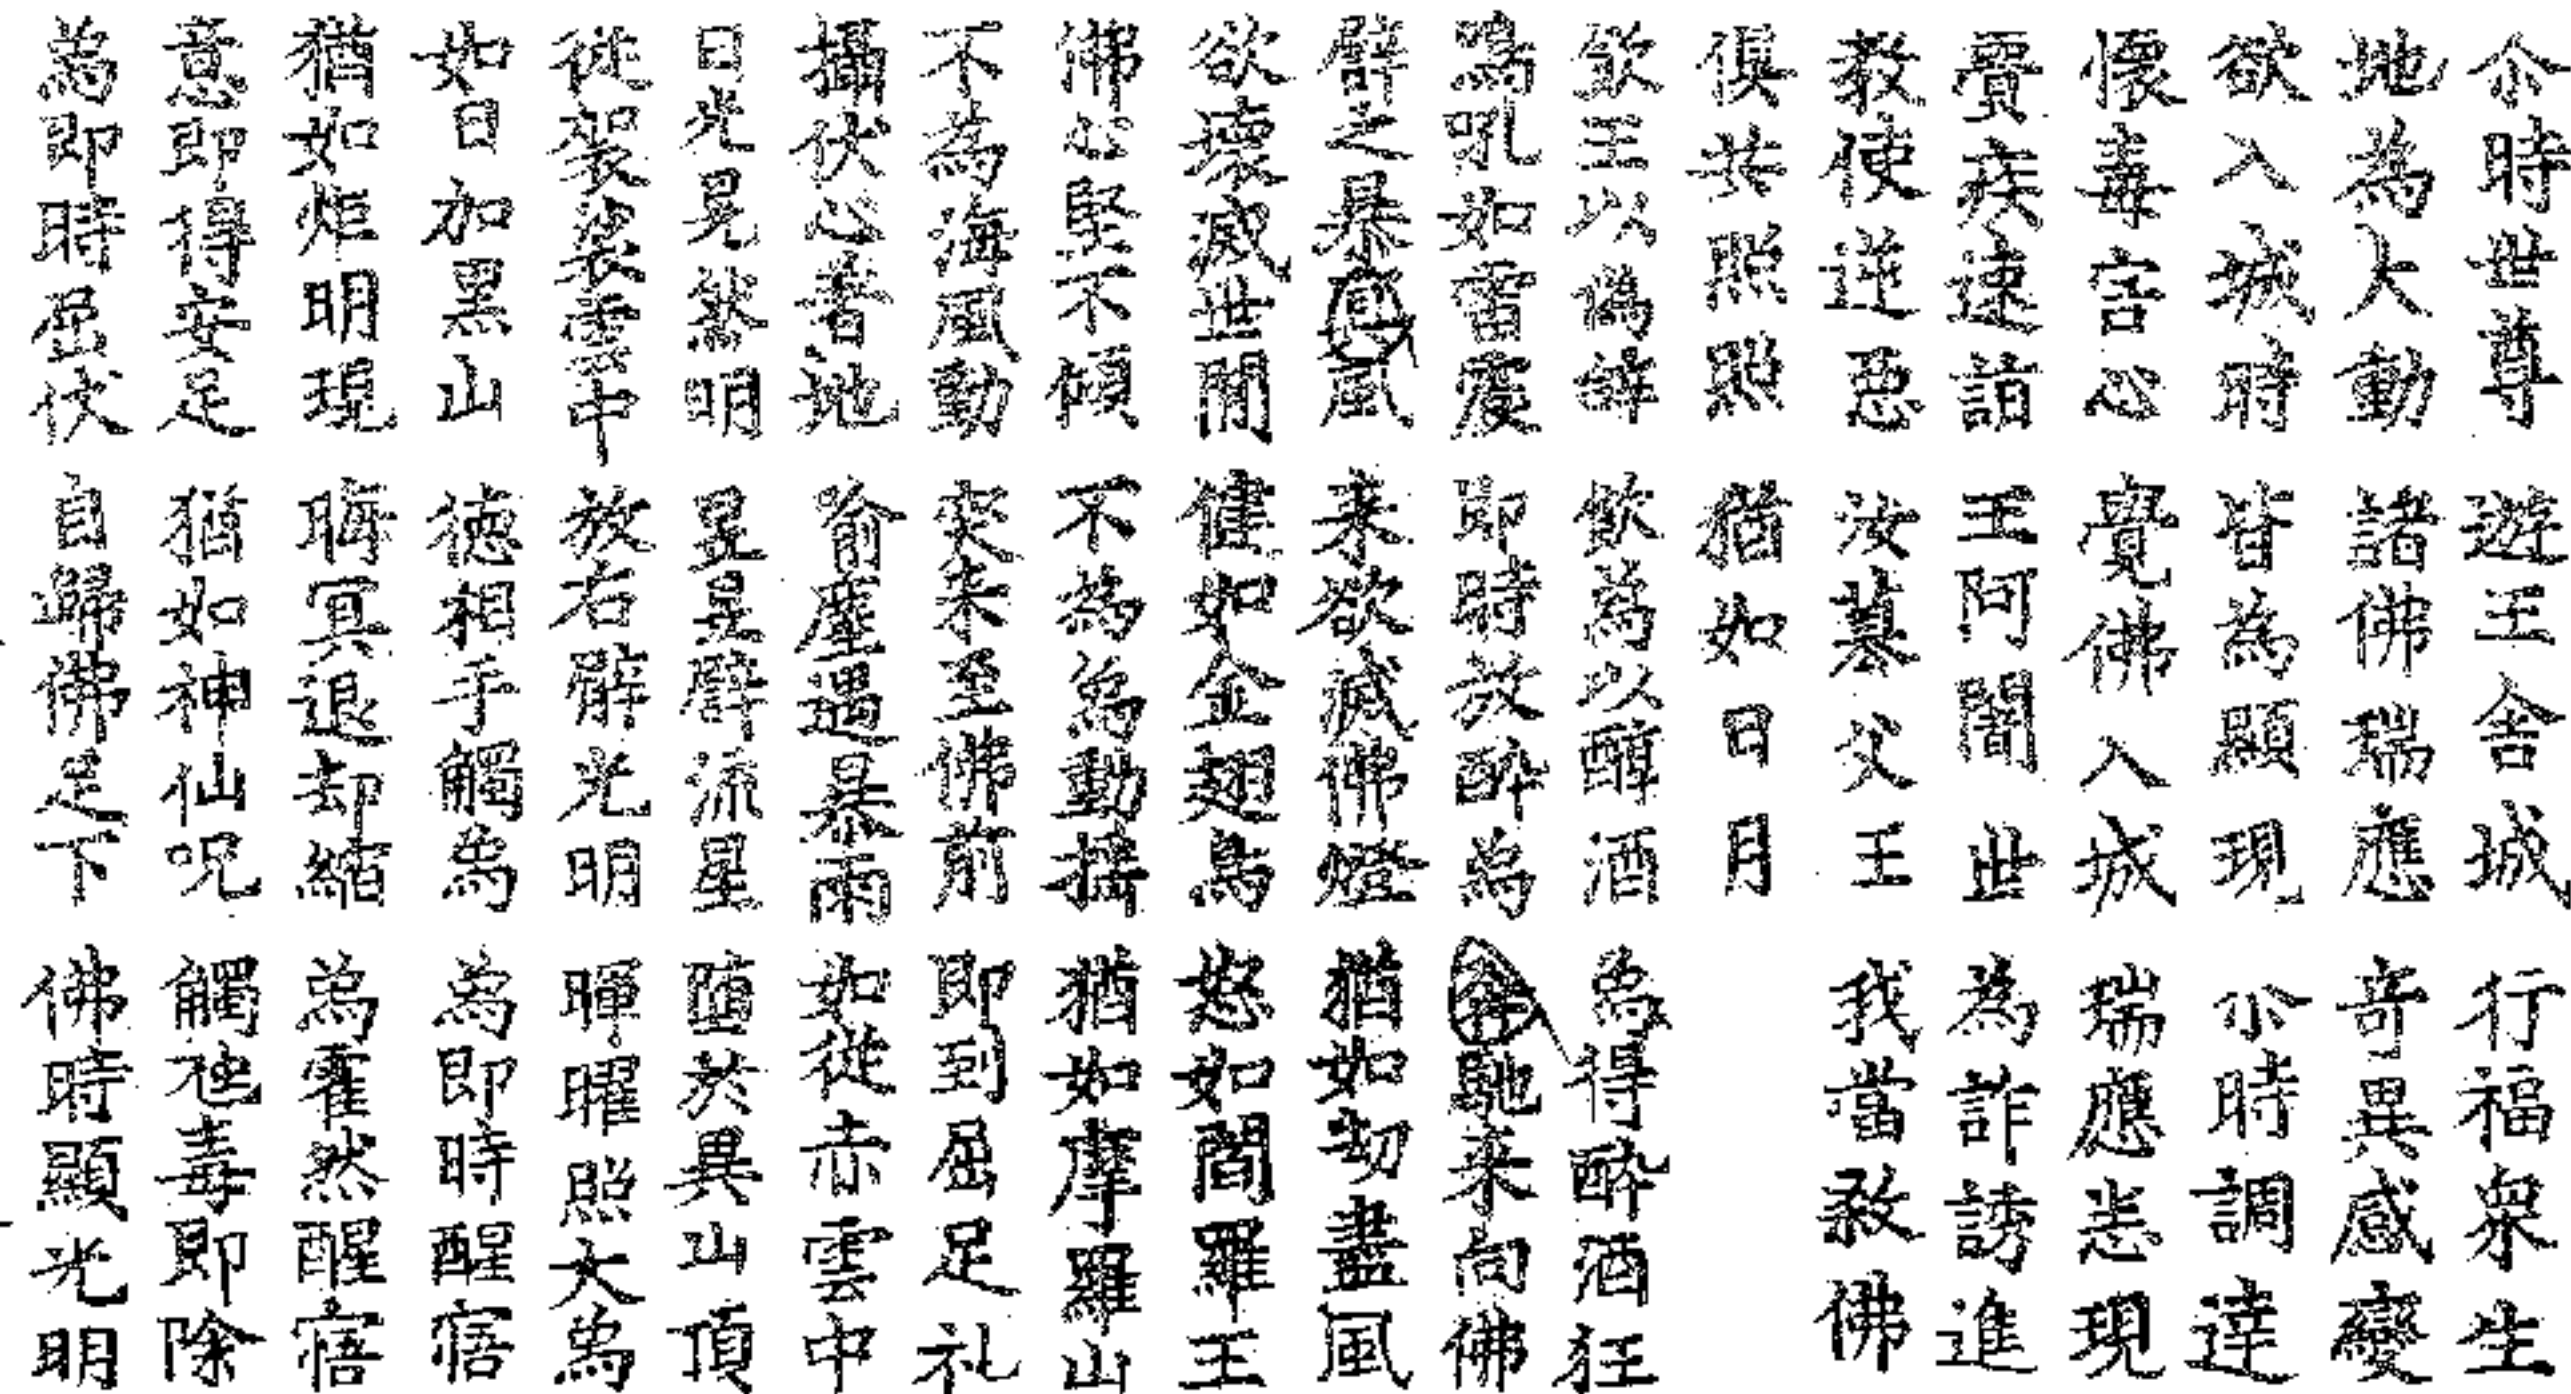 尒時世尊　遊王舍城　行福衆生
地為大動　諸佛瑞應　奇異感變
欲入城時　皆為顯現　尒時調達
懷毒害心　覺佛入城　瑞應悉現
賷疾速詣　王阿闍世　為詐誘進
教使逆惡　汝募父王　我當敩佛
俱共照照　猶如日月
飲王以象觧　飲象以醇酒　象得醉酒狂
鳴吼如雷震　即時放醉象　奔馳来向佛
譬之暴風　来欲滅佛燈　猶如劫盡風
欲壞滅世間　隹如金翅鳥　怒如閻羅王
佛心堅不傾　不為象動揺　猶如摩羅山
不為海風動　象来至佛前　即到屈足礼
攝伏心著地　喻塵遇暴雨　如從赤雲中
日光晃然明　昱昱臂流星　墮於異山頂
從袈裟雲中　放右臂光明　暉曜照大象
如日加黑山　德相手觸象　象即時醒寤
猶如炬明現　晦冥退却縮　象霍然醒寤
意即得安足　猶如神仙呪　觸虵毒即除
象即時屈伏　自歸佛足下　佛時顯光明